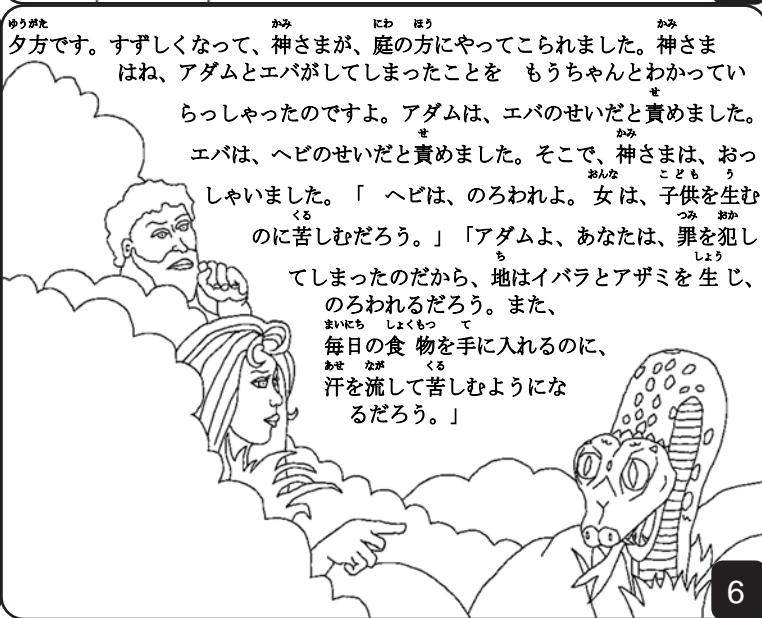 夕方です。すずしくなって、神さまが、庭の方にやってこられました。神さま
はね、アダムとエバがしてしまったことを　もうちゃんとわかってい
らっしゃったのですよ。アダムは、エバのせいだと責めました。
エバは、ヘビのせいだと責めました。そこで、神さまは、おっ
しゃいました。「　ヘビは、のろわれよ。女は、子供を生む
のに苦しむだろう。」「アダムよ、あなたは、罪を犯し
てしまったのだから、地はイバラとアザミを生じ、
のろわれるだろう。また、
毎日の食物を手に入れるのに、
汗を流して苦しむようにな
るだろう。」
6